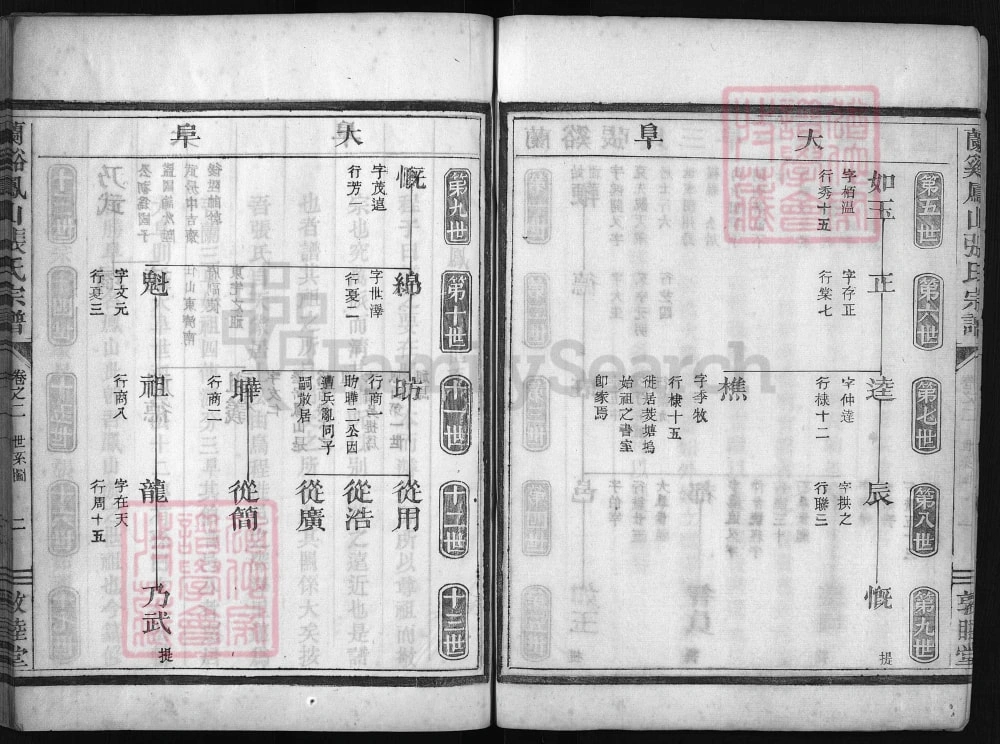 蘭谿鳳山張氏宗譜
敦睦堂
大阜
第五世
第六世
第七世
第八世
第九世
如玉
字栢温
行秀十五
正
字存正
行棠七
逵
字仲逵
行棣十二
樵
字季牧
行棣十五
徙居菱塘塢
始祖之書室
即家焉
辰
字拱之
行聯三
慨
提
大阜
第九世
第十世
十一世
十二世
十三世
慨
字茂遠
行芳一
綿
字世澤
行憂二
魁
字文元
行憂三
昉
行商一
昉曄二公因
遭兵亂同子
嗣散居
曄
行商二
祖
行商八
從用
從浩
從廣
從簡
龍
字在天
行周十五
乃武
提
蘭谿鳳山張氏宗譜
卷之二
世系圖
二
敦睦堂
FamilySearch